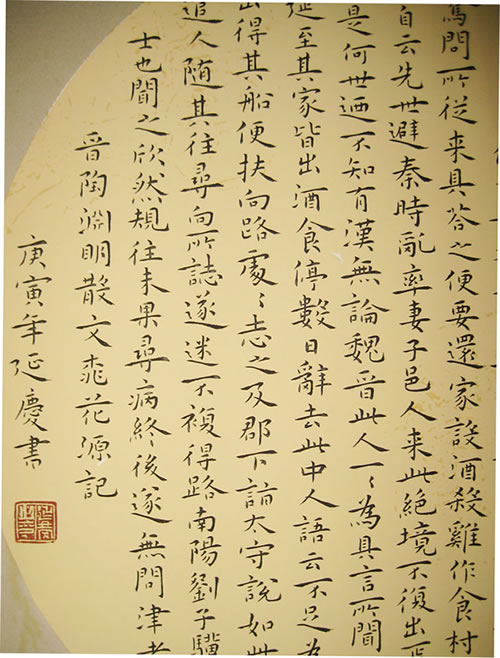 問所従来具荅之便要還家設酒殺雞作食村
自云先世避秦時亂率妻子邑人来此絶境不復出
是何世迺不知有漢無論魏晋此人一〻為具言所聞
延至其家皆出酒食停數日辭去此中人語云不足為
出得其船便扶向路處〻志之及郡下詣太守說如此
遣人随其往尋向所誌遂迷不複得路南陽劉子驥
士也聞之欣然規往未果尋病終後遂無問津者
晋陶淵明散文桃花源記
庚寅年延慶書